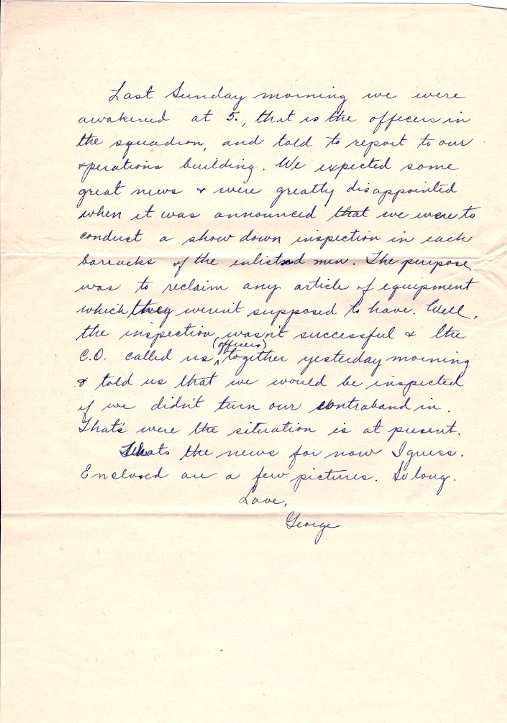 Last Sunday morning we were
awakened at 5., that is the officers in
the squadron, and told to report to our
operations building. We expected some
great news & were greatly disappointed
when it was announced that we were to
conduct a show down inspection in each
barracks of the enlisted men. The purpose
was to reclaim any article of equipment
which they weren't supposed to have. Well,
the inspection wasn't successful & the
C.O. called us (officers) together yesterday morning
& told us that we would be inspected
if we didn't turn our contraband in.
Thats were the situation is at present.
Thats the news for now I guess.
Enclosed are a few pictures. So long.
Love,
George